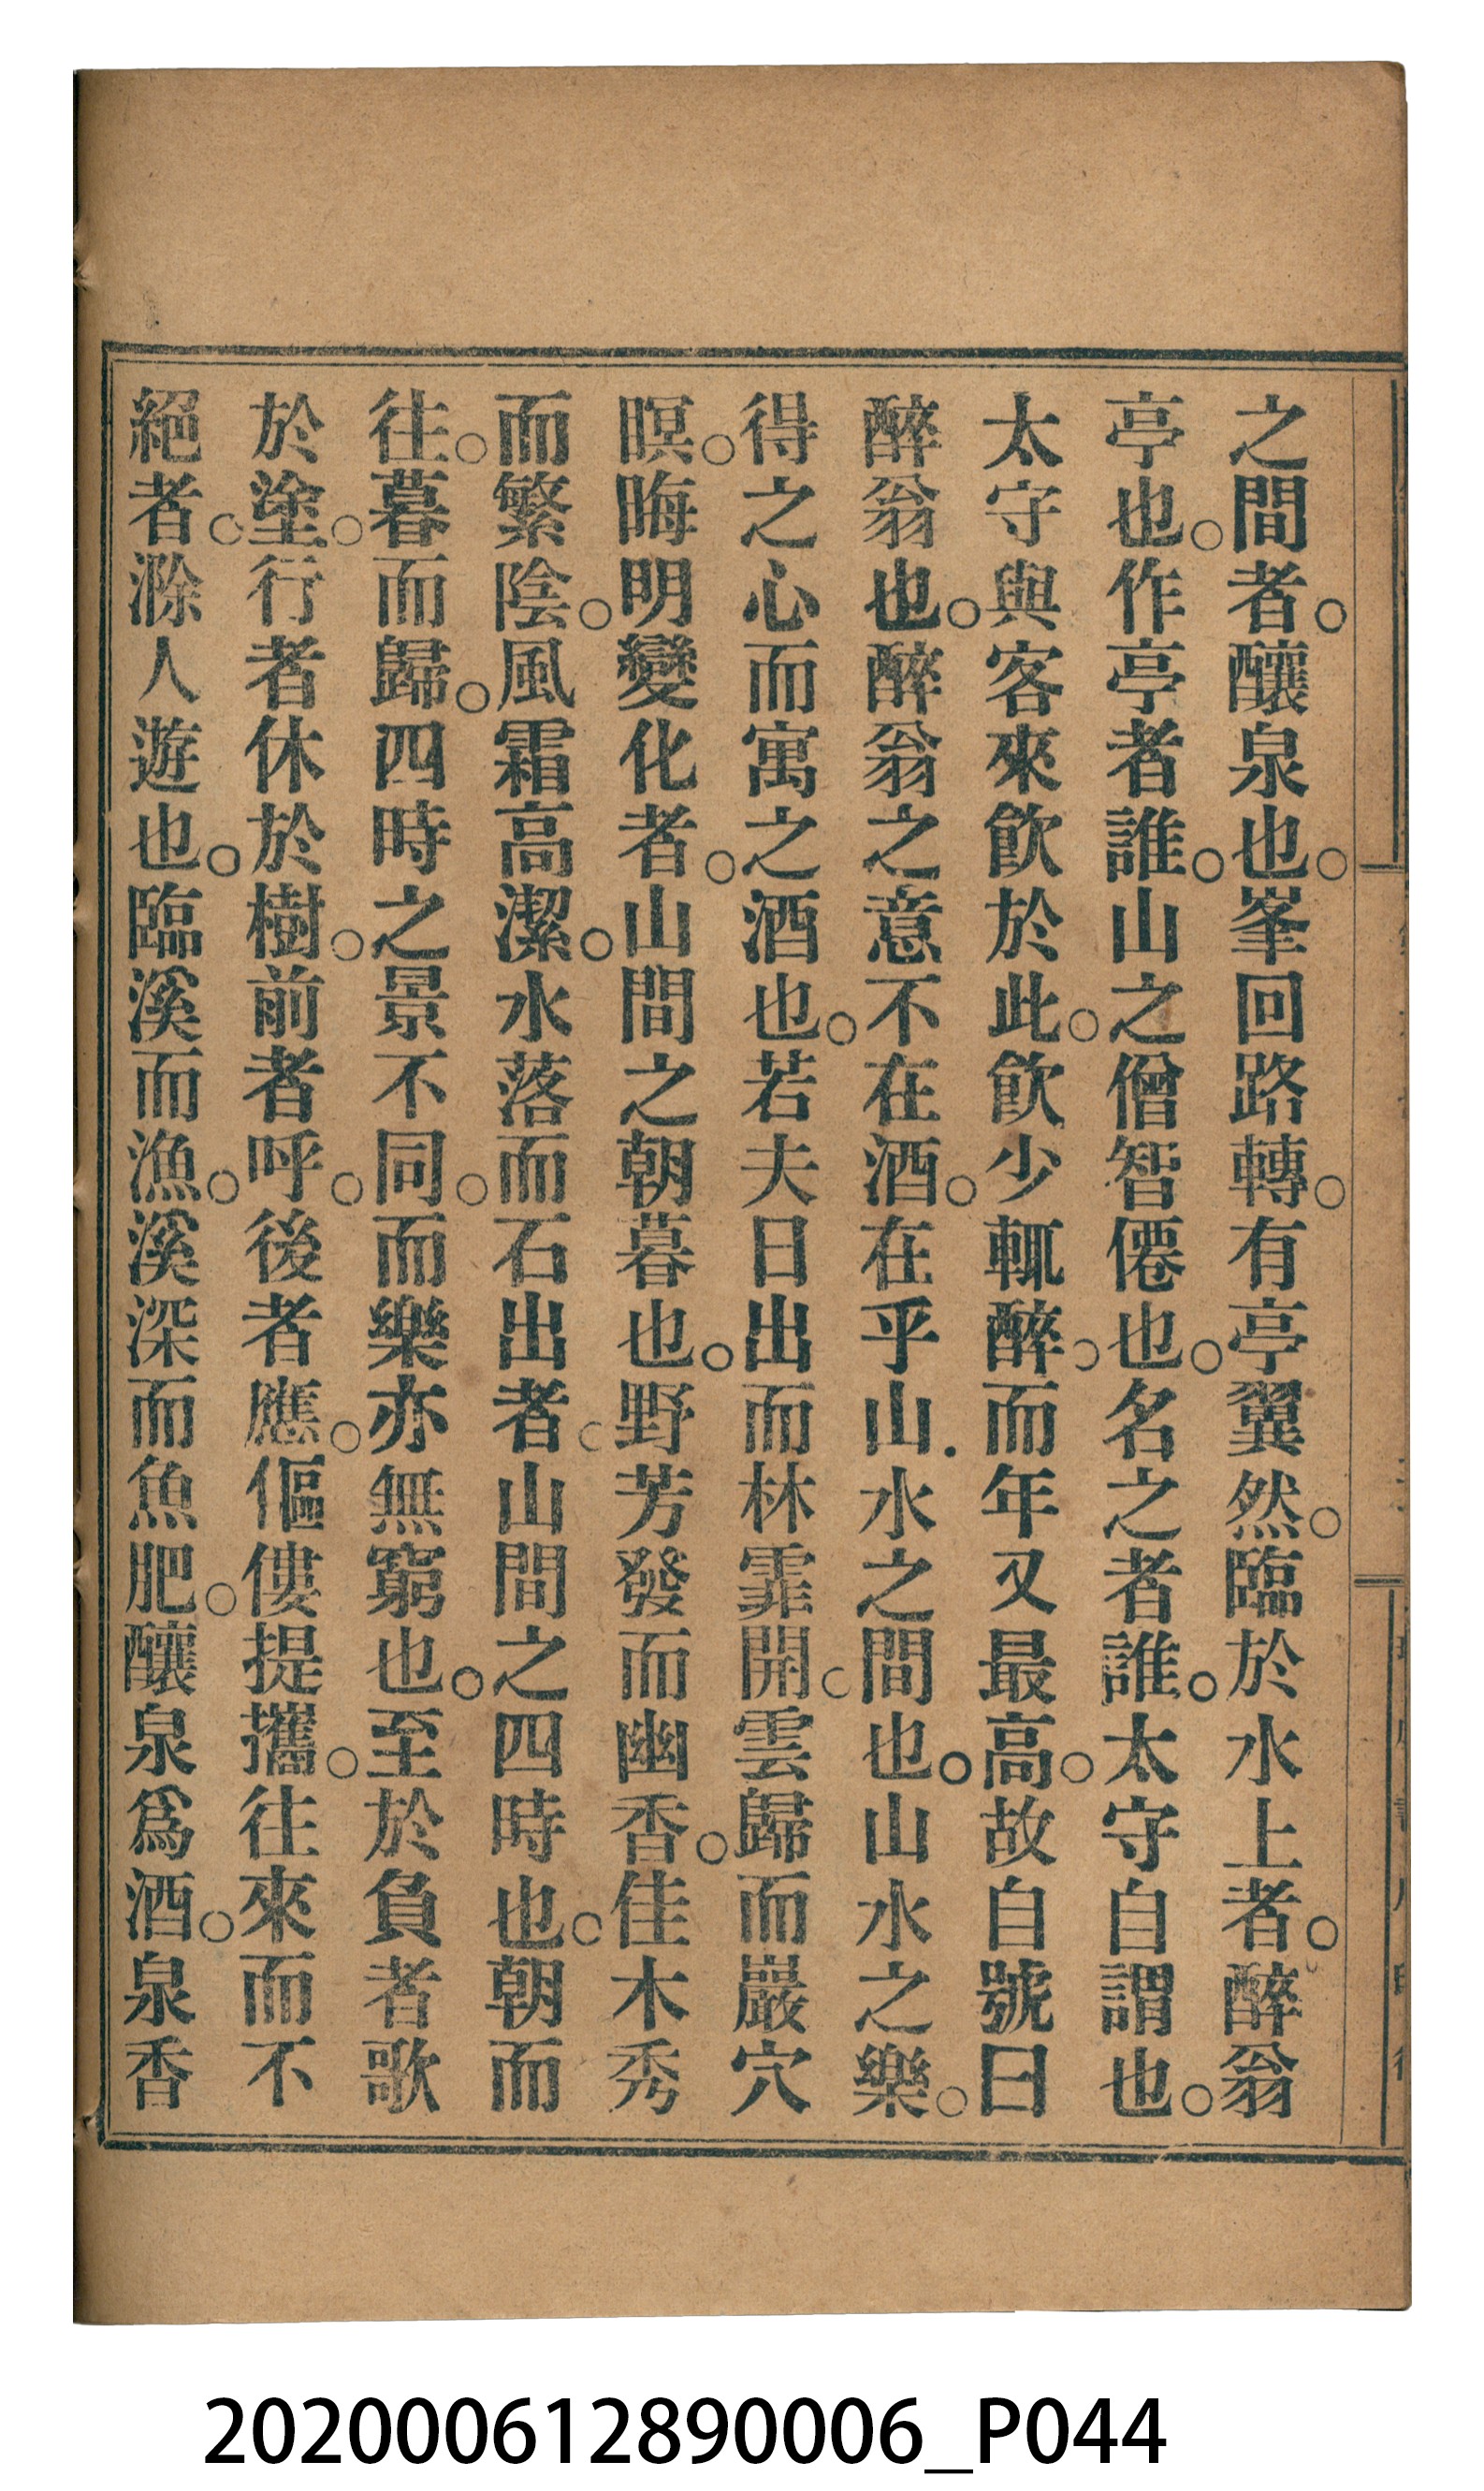 之間者。釀泉也。峯回路轉。有亭翼然。臨於水上者。醉翁
亭也。作亭者誰。山之僧智僊也。名之者誰。太守自謂也。
太守與客來飮於此。飮少輒醉。而年又最高。故自號曰
醉翁也。醉翁之意不在酒。在乎山.水之間也。山水之樂。
得之心而寓之酒也。若夫日出而林霏開。雲歸而巖穴
暝。晦明變化者。山間之朝暮也。野芳發而幽香。佳木秀
而繁陰。風霜高潔。水落而石出者。山間之四時也。朝而
往。暮而歸。四時之景不同。而樂亦無窮也。至於負者歌
於塗。行者休於樹。前者呼。後者應。傴僂提攜。往來而不
絕者。滁人遊也。臨溪而漁。溪深而魚肥。釀泉爲酒。泉香
202000612890006_P044